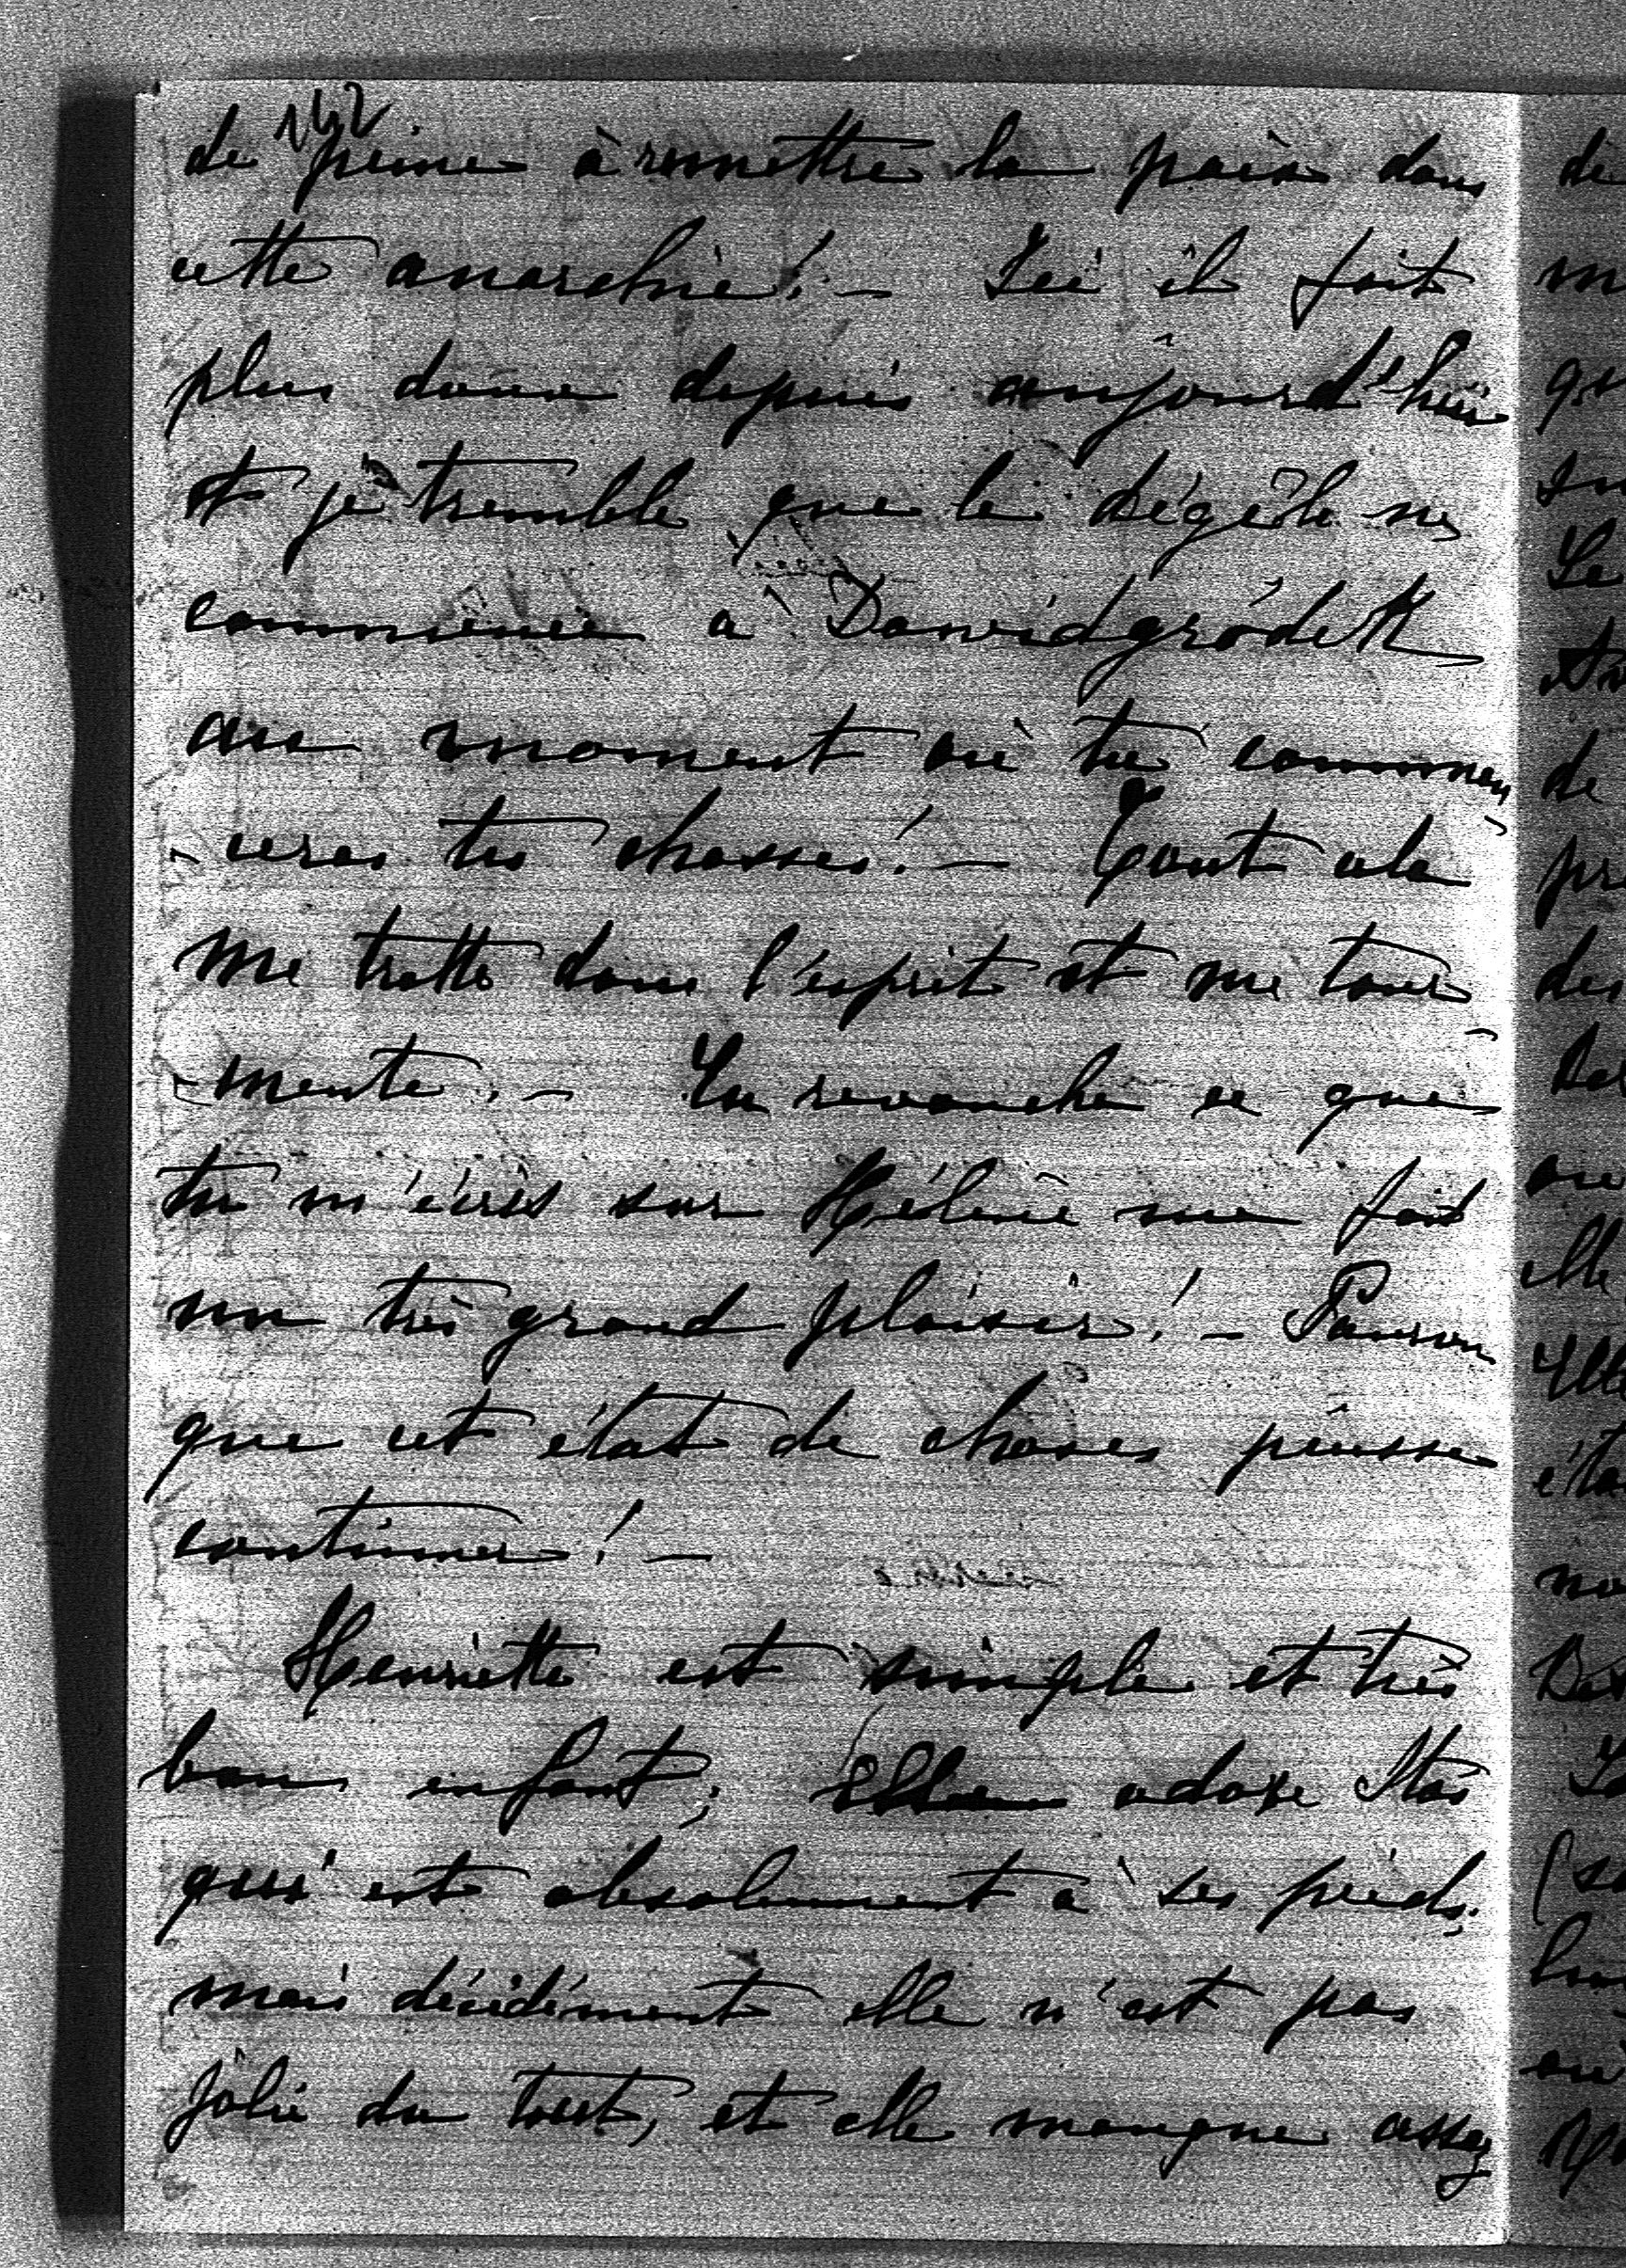 142.
de peine à remettre la paix dans
cette anarchie! — Ici il fait
plus doux depuis aujourd'hui
et je tremble que le dégèle ne
commence à Dawidgródek
au moment où tu commen
-ceras tes chasses! — Tout cela
me trotte dans l'esprit et me tour
-mente. — En revanche ce que
tu m'écris sur Hélène me fait
un très grand plaisir! — Pourvu
que cet état de choses puisse
continuer! —
Henriette est simple et très
bon enfant; elle adore Stas
qui est absolument à ses pieds;
mais décidément elle n'est pas
jolie du tout, et elle manque assez